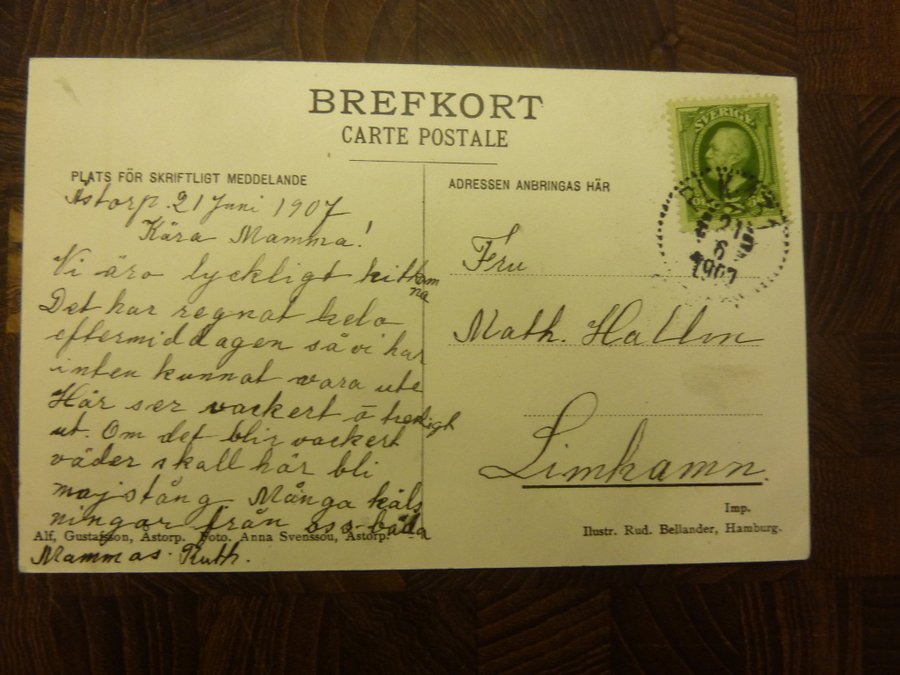 BREFKORT
CARTE POSTALE
PLATS FÖR SKRIFTLIGT MEDDELANDE
Åstorp. 21 Juni 1907
Kära Mamma!
Vi äro lyckligt hitkom
na
Det har regnat hela
eftermiddagen så vi har
inten kunnat vara ute
Här ser vackert o trefligt
ut. Om det blir vackert
väder skall här bli
majstång Många häls
ningar från oss båda
Alf, Gustafsson, Åstorp. Foto. Anna Svensson, Åstorp.
Mammas Ruth.
ADRESSEN ANBRINGAS HÄR
SVERIGE
21
6
1907
Fru
Math. Hallin
Limhamn.
Imp.
Ilustr. Rud. Bellander, Hamburg.